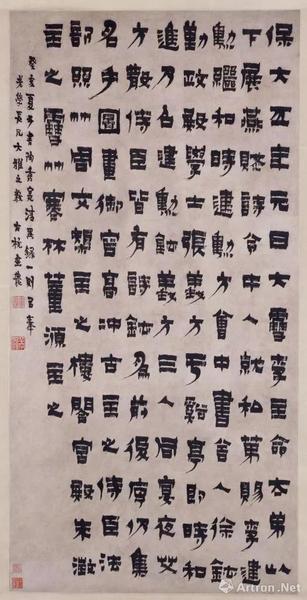 保大元日大雪李主命太弟以
下展燕賦詩命中人就私第賜李建
勳繼和時建勳方會中書舍人徐鉉
勤政殿學士張義方于谿亭即時和
進乃召建勳鉉義方三人同宴夜艾
方散侍臣皆有詩鉉為前後序仍集
名手圖畫御容高沖古主之侍臣法
部絲竹周文矩主之樓閣宮殿朱澂
主之雪竹寒林董源主之
癸亥夏五書清異錄一則奉
學長兄大雅之教古杭